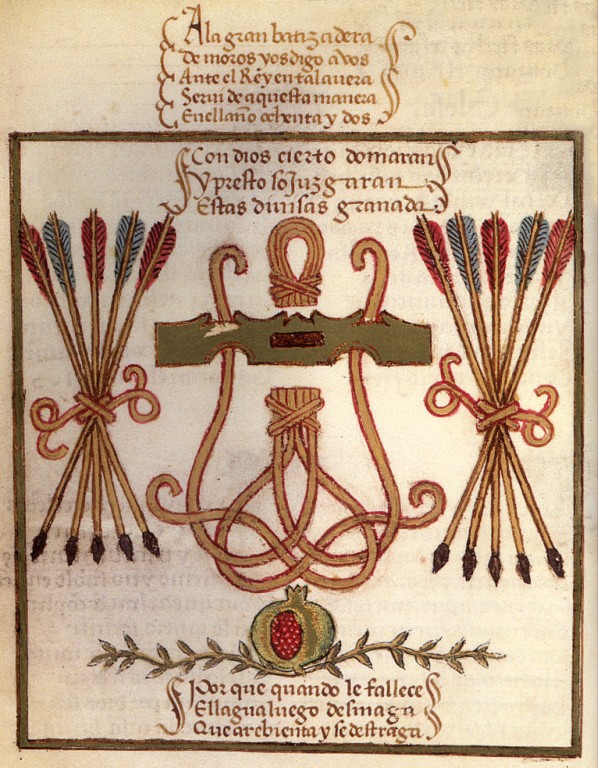 Ala gran batizadera
de moros vos digo a vos
Ante el Rey en talavera
Servi de aquesta manera
En el año ochenta y dos
Con dios cierto domaran
y presto sojuzgaran
Estas divisas granada
Por que quando le fallece
El agua luego desmaga
Que arebienta y se destraga